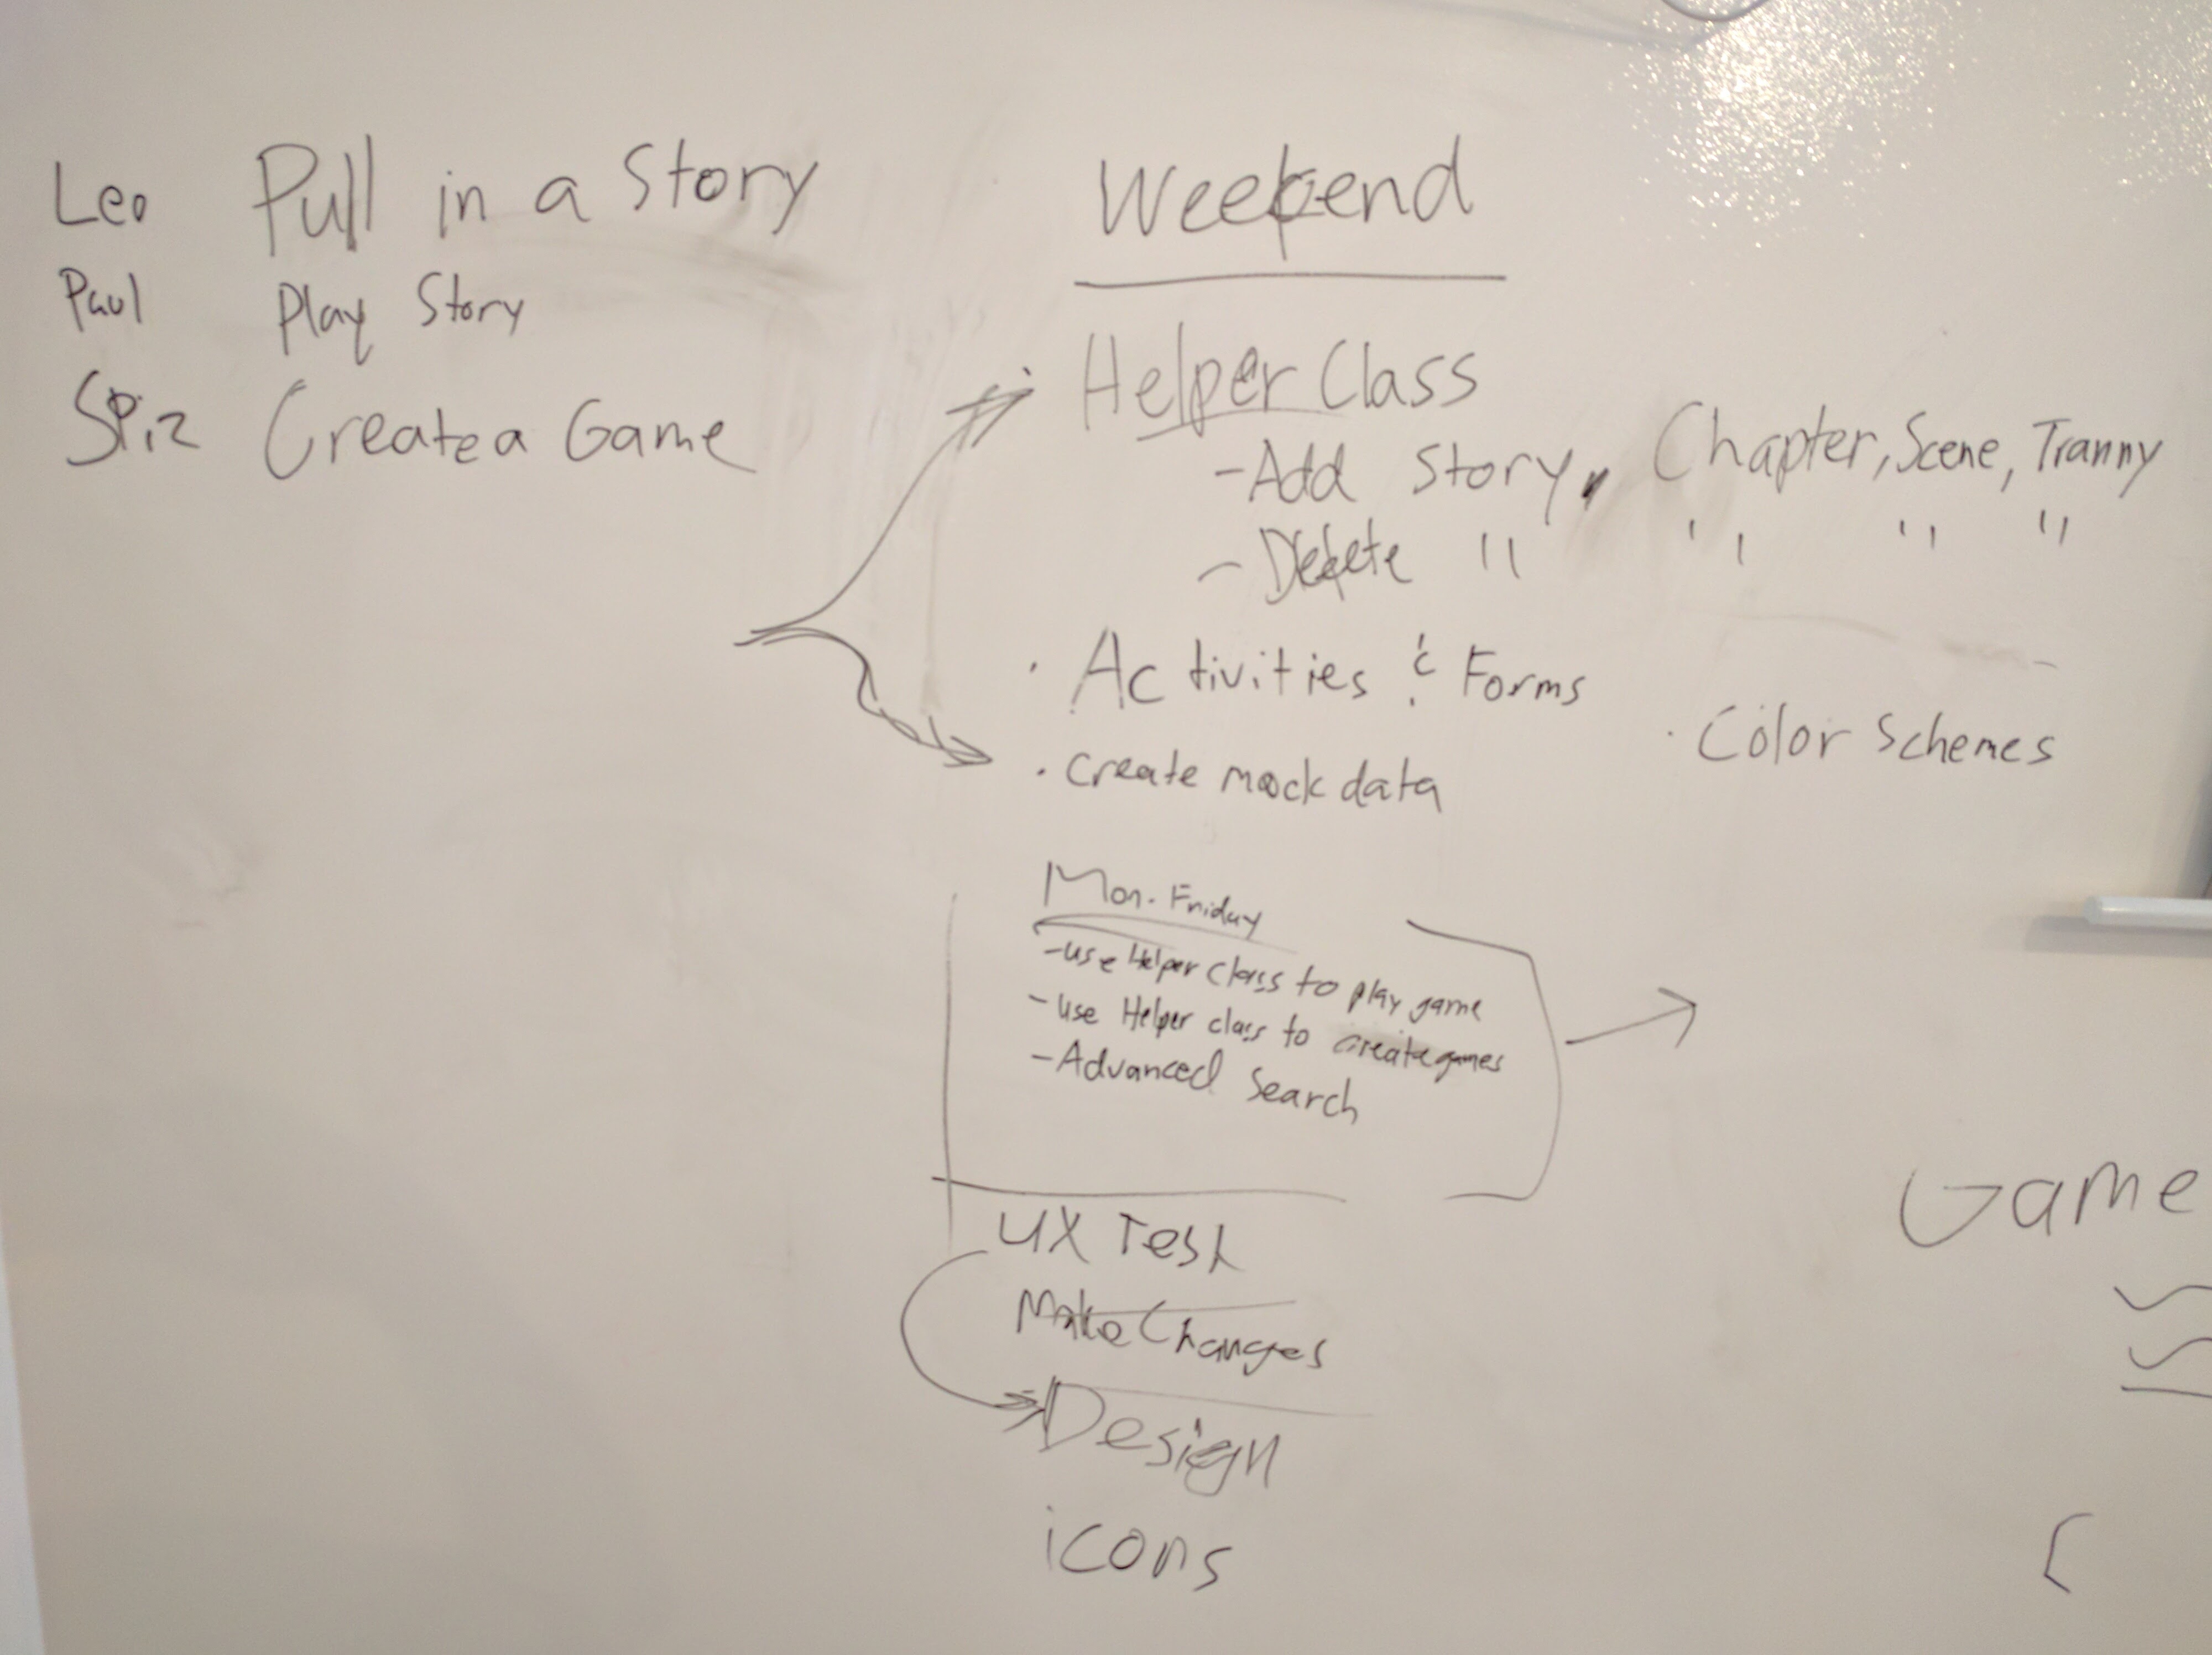 Leo Pull in a Story
Paul Play Story
Spiz Create a Game
Weekend
Helper Class
-Add Story, Chapter, Scene, Tranny
- Delete " " " "
· Activities & Forms
· Color Schemes
· Create mock data
Mon. Friday
-use Helper class to play game
-use Helper class to create games
-Advanced Search
UX Test
Make Changes
Design
icons
Game